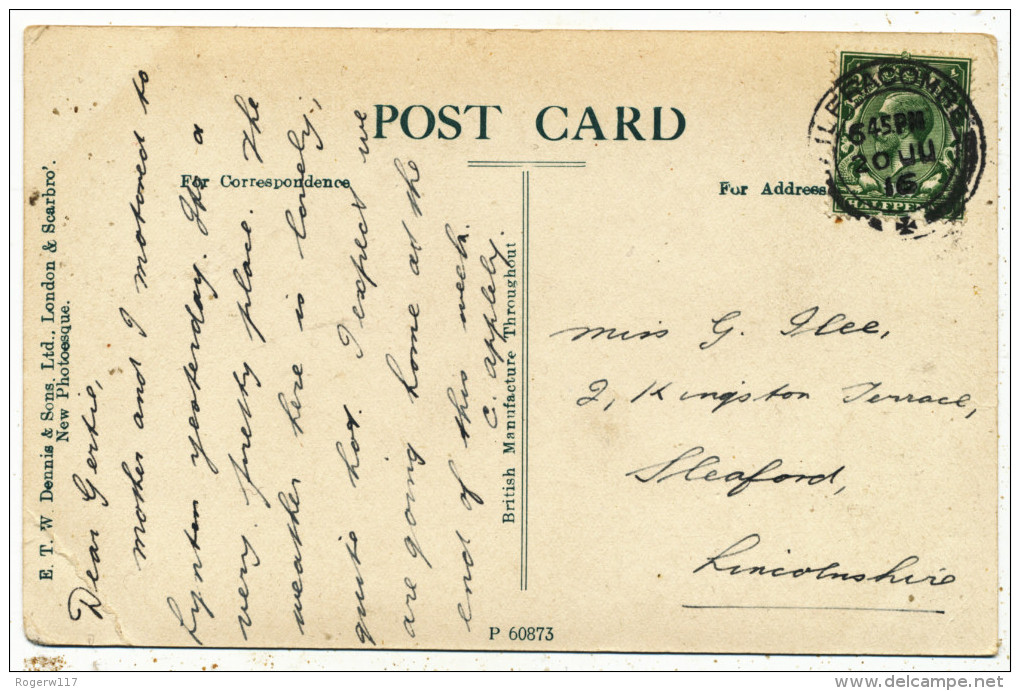 POST CARD
For Correspondence
For Address
E. T. W Dennis & Sons, Ltd., London & Scarbro'.
New Photoesque.
Dear Gertie,
Mother and I motored to
Lynton yesterday. Its a
very pretty place. The
weather here is lovely,
quite hot. I expect we
are going home at the
end of this week.
C. Appleby.
British Manufacture Throughout
ILFRACOMBE
6 45 PM
20 JU
16
HALFPENNY
Miss G. Ilee,
2, Kingston Terrace,
Sleaford,
Lincolnshire
P 60873
Rogerw117
delcampe.net